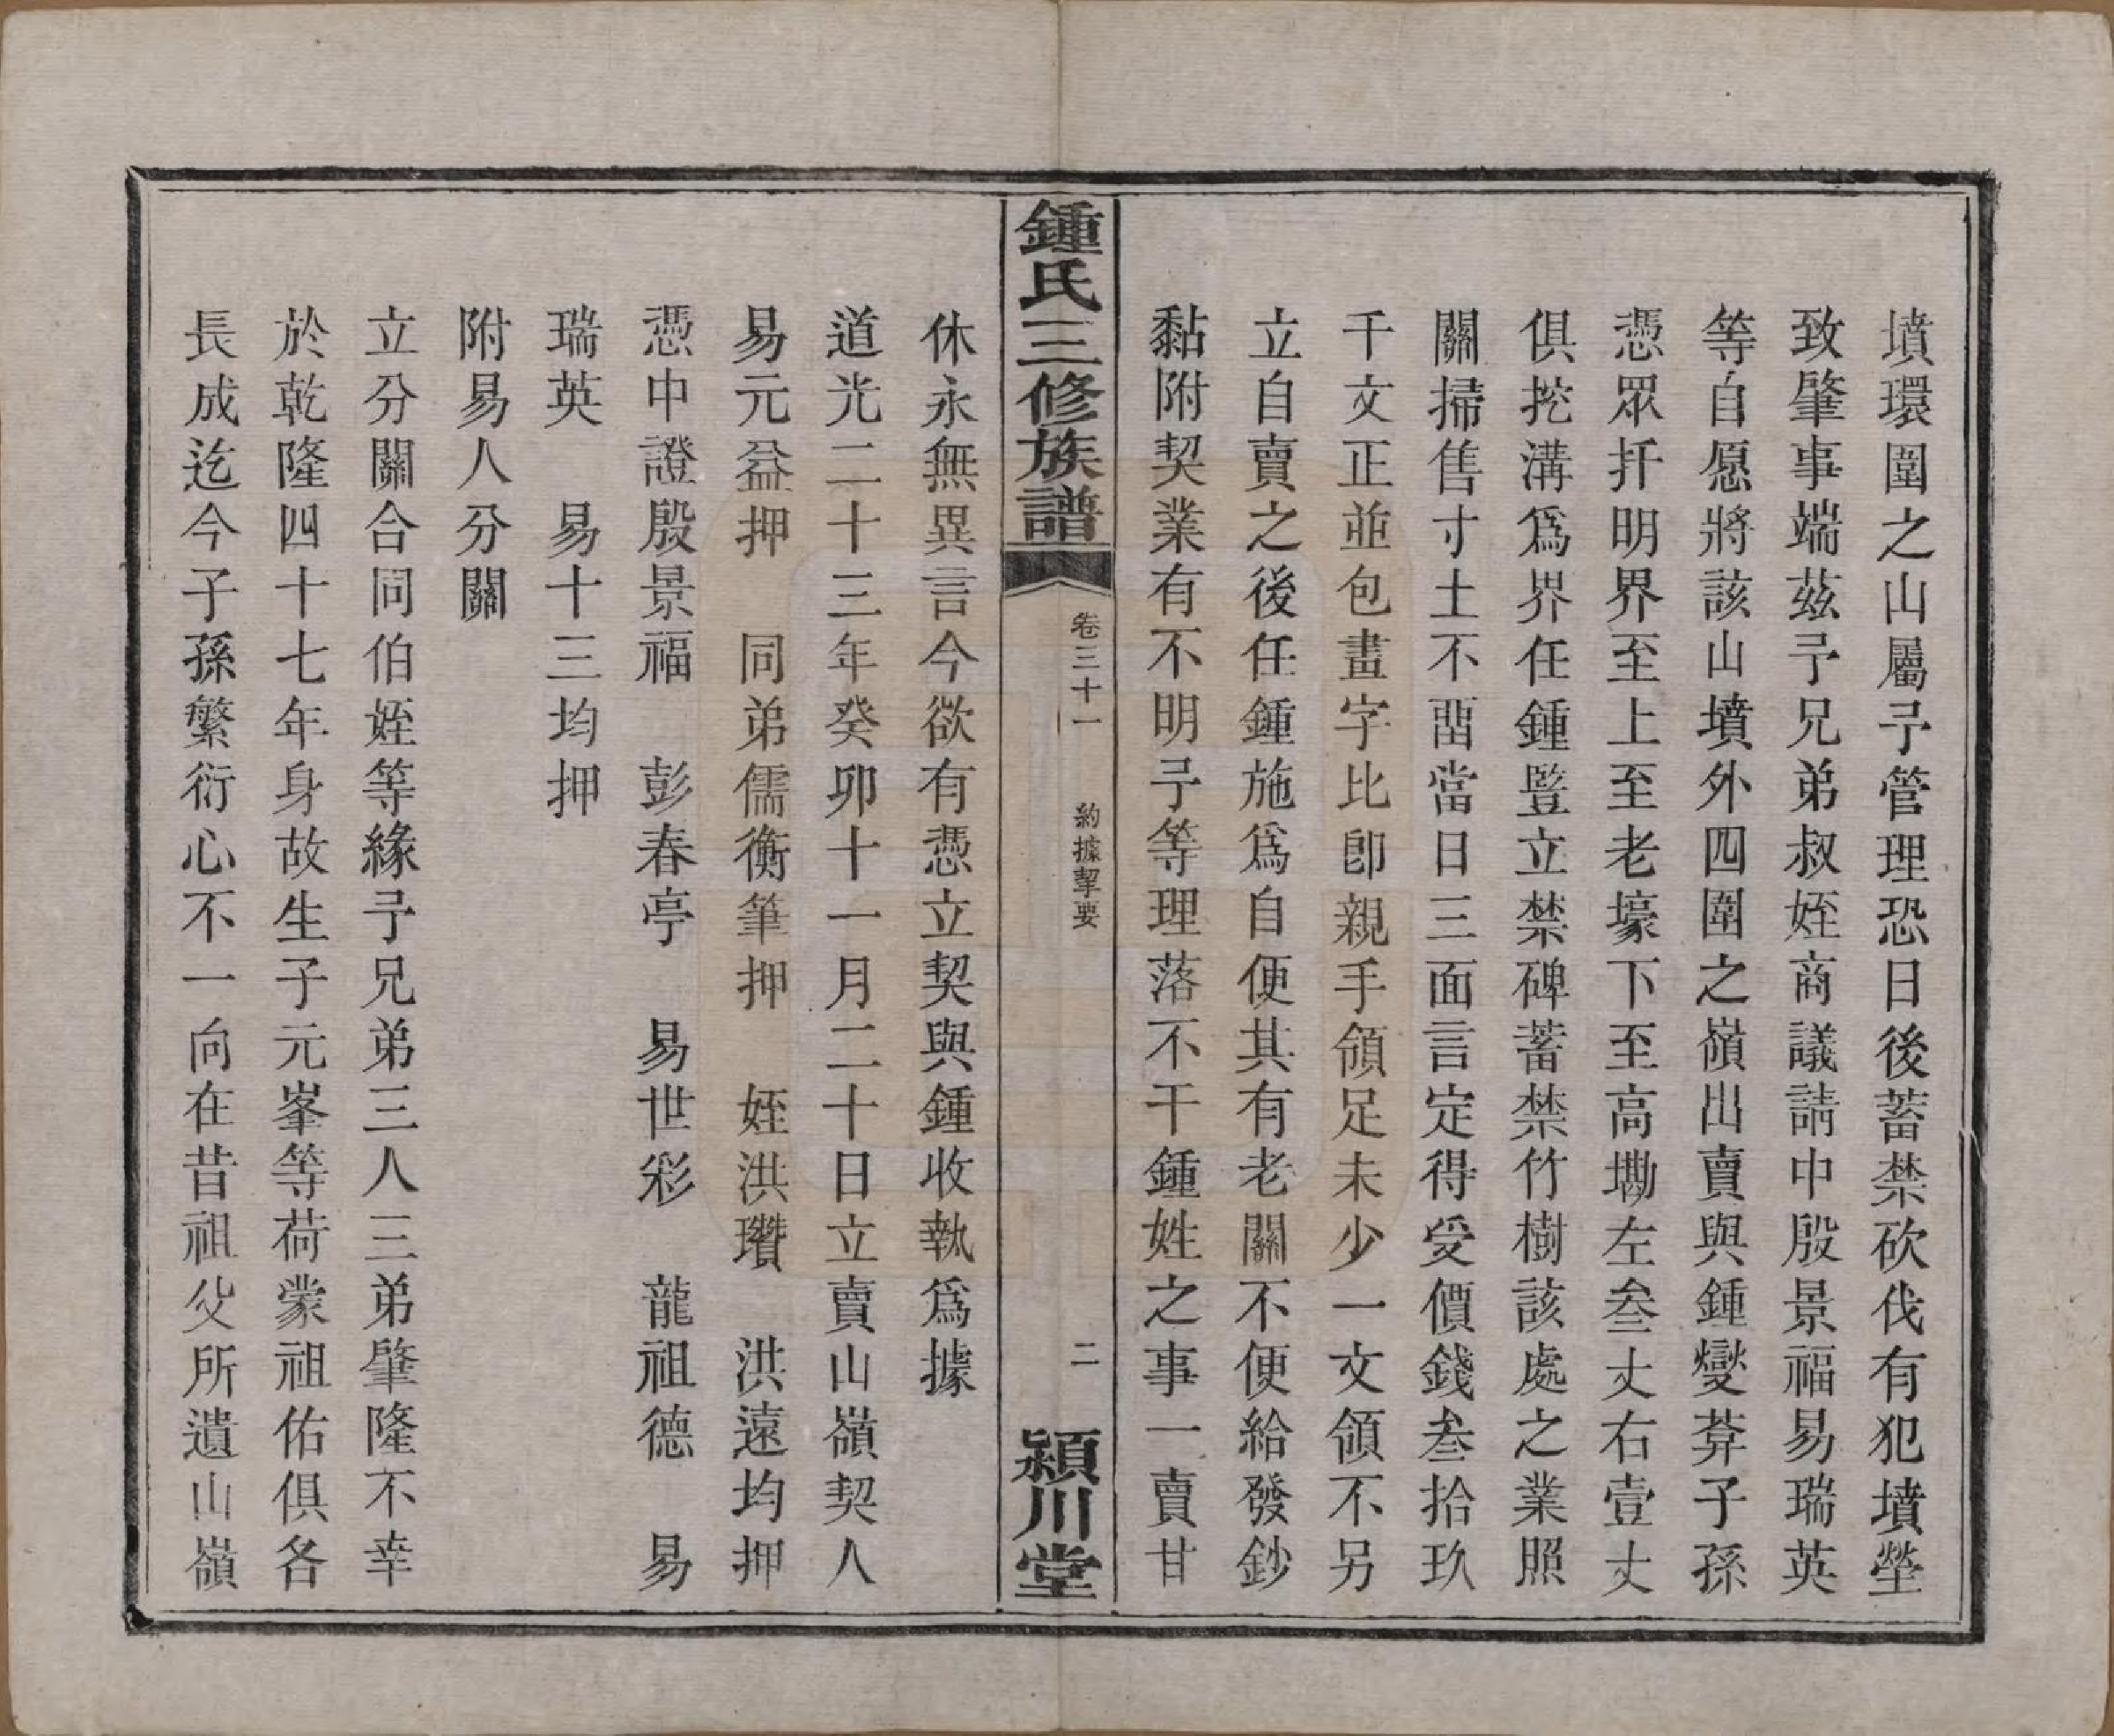 墳環圍之山屬予管理恐日後蓄禁砍伐有犯墳塋
致肇事端茲予兄弟叔姪商議請中殷景福易瑞英
等自愿將該山墳外四圍之嶺出賣與鍾燮葊子孫
憑眾扦明界至上至老壕下至高墈左叁丈右壹丈
俱挖溝爲界任鍾豎立禁碑蓄禁竹樹該處之業照
關掃售寸土不畱當日三面言定得受價錢叁拾玖
千文正並包畫字比卽親手領足未少一文領不另
立自賣之後任鍾施爲自便其有老關不便給發鈔
黏附契業有不明予等理落不干鍾姓之事一賣甘
鍾氏三修族譜 卷三十一 約據挈要 二 潁川堂
休永無異言今欲有憑立契與鍾收執爲據
道光二十三年癸卯十一月二十日立賣山嶺契人
易元益押 同弟儒衡筆押 姪洪瓚 洪遠均押
憑中證殷景福 彭春亭 易世彩 龍祖德 易
瑞英 易十三均押
附易人分關
立分關合同伯姪等緣予兄弟三人三弟肇隆不幸
於乾隆四十七年身故生子元峯等荷蒙祖佑俱各
長成迄今子孫繁衍心不一向在昔祖父所遺山嶺